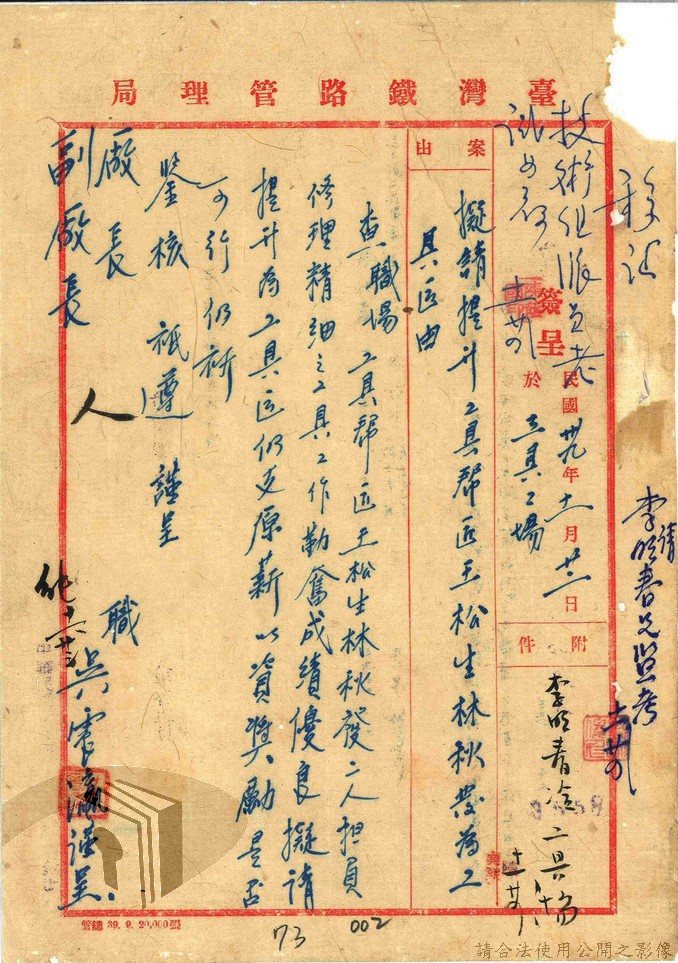 臺灣鐵路管理局
簽呈
民國卅九年十一月廿二日
於工具工場
案由
擬請提升工具幫匠王松生林秋發為工
具匠由
附件
查職場工具幫匠王松生林秋發二人担負
修理精細之工具工作勤奮成績優良擬請
提升為工具匠仍支原薪以資獎勵是否
可行仍祈
鑒核祇遵謹呈
廠長
副廠長
職吳震瀛謹呈
技術组派員考
試如何
十一廿四
請
李明春兄監考
十一廿四
工具場
管總 39. 9. 20,000張
73
002
請合法使用公開之影像